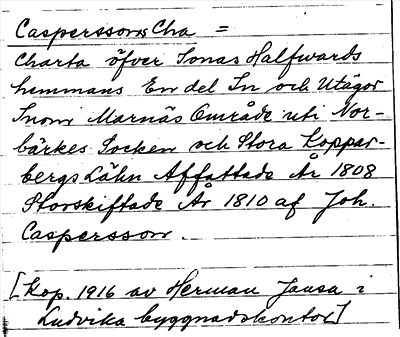 Caspersson, Cha =
Charta öfver Jonas Halfwards
hemmans En del In och Utägor
Inom Marnäs Område uti Nor-
bärkes Socken och Stora Koppar-
bergs Lähn Affattade År 1808
Storskiftade År 1810 af Joh.
Caspersson.
[Kop. 1916 av Herman Jansa i
Ludvika byggnadskontor]